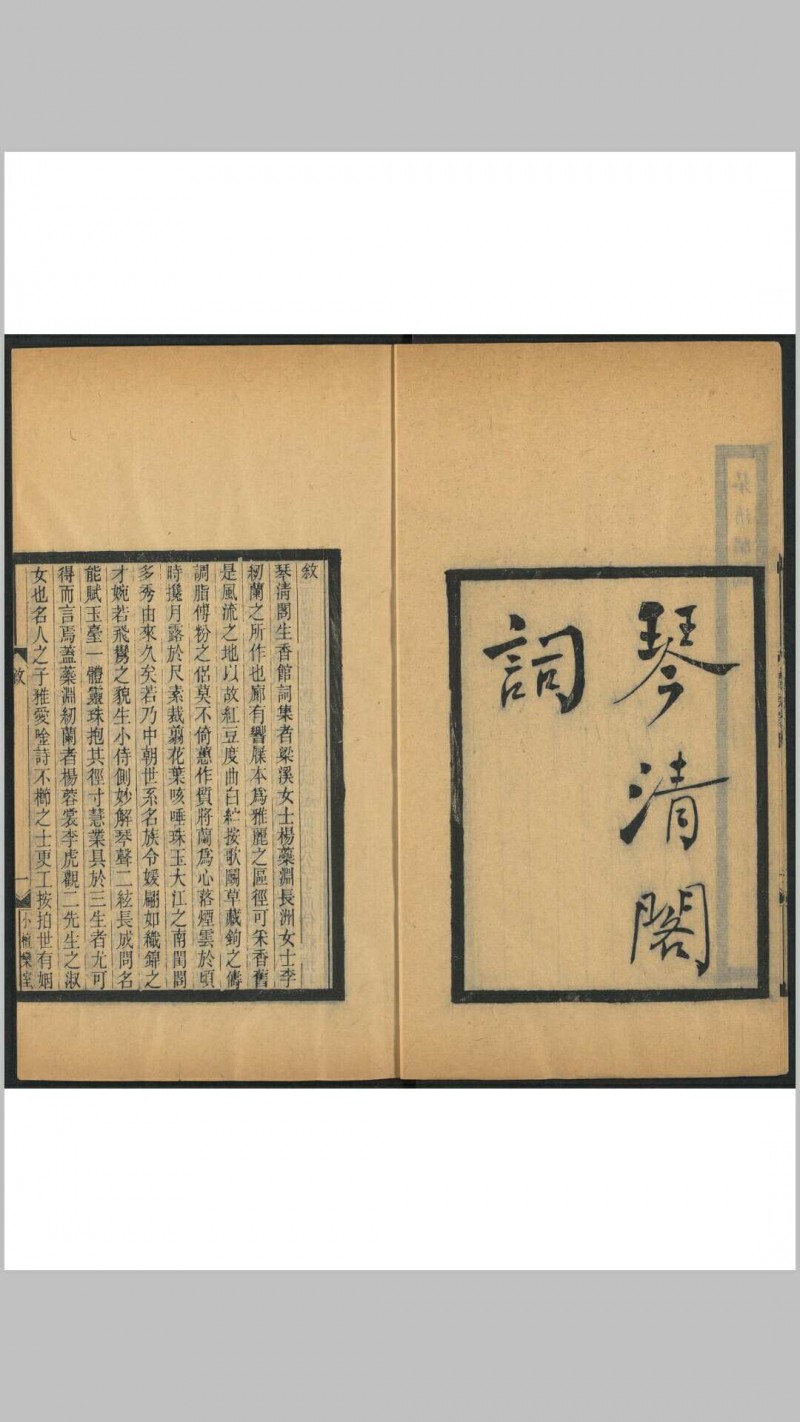 琴清閣
詞
敘
琴清閣生香館詞集者梁溪女士楊蘂淵長洲女士李
紉蘭之所作也廊有響屧本爲雅麗之區徑可采香舊
是風流之地以故紅豆度曲白紵按歌鬭草藏鉤之儔
調脂傅粉之侶莫不倚蕙作質將蘭爲心落煙雲於頃
時攙月露於尺素裁翦花葉咳唾珠玉大江之南閨閤
多秀由來久矣若乃中朝世系名族令媛翩如織錦之
才婉若飛鸞之貌生小侍側妙解琴聲二絃長成問名
能賦玉臺一體靈珠抱其徑寸慧業具於三生者尤可
得而言焉蓋蘂淵紉蘭者楊蓉裳李虎觀二先生之淑
女也名人之子雅愛唫詩不櫛之士更工按拍世有姻
敘
一
小檀欒室